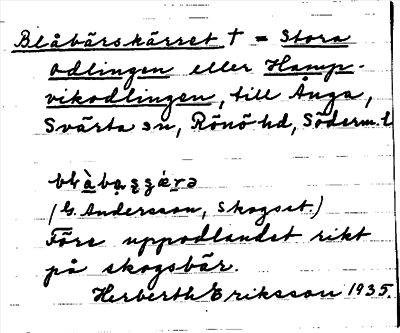 Blåbärskärret † = Stora
Odlingen eller Hamp-
vikodlingen, till Ånga,
Svärta sn, Rönö hd, Söderm. l
(G. Andersson, Skogset.)
Före uppodlandet rikt
på skogsbär.
Herberth Eriksson 1935.